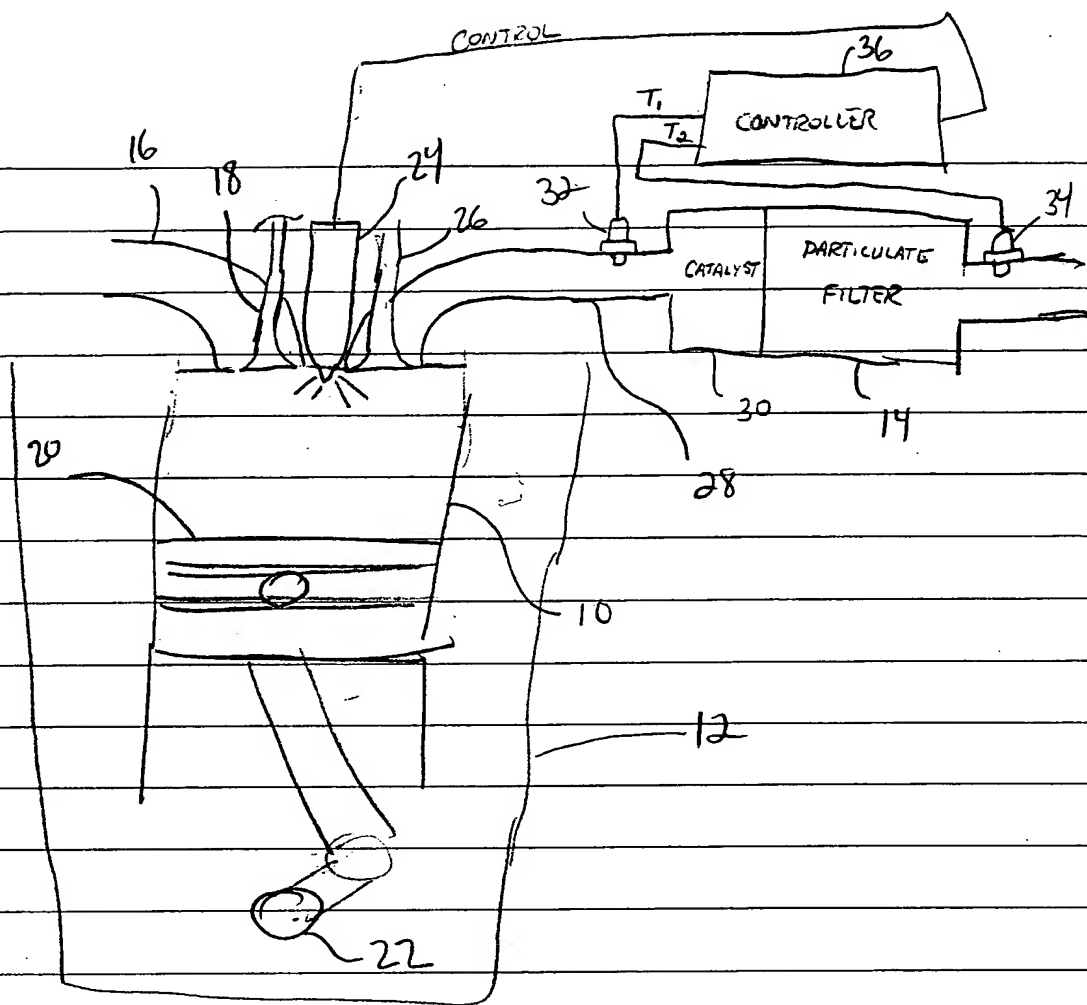 CONTROL
36
T1
CONTROLLER
T2
16
18
24
32
34
26
CATALYST
PARTICULATE
FILTER
30
14
20
28
10
12
22